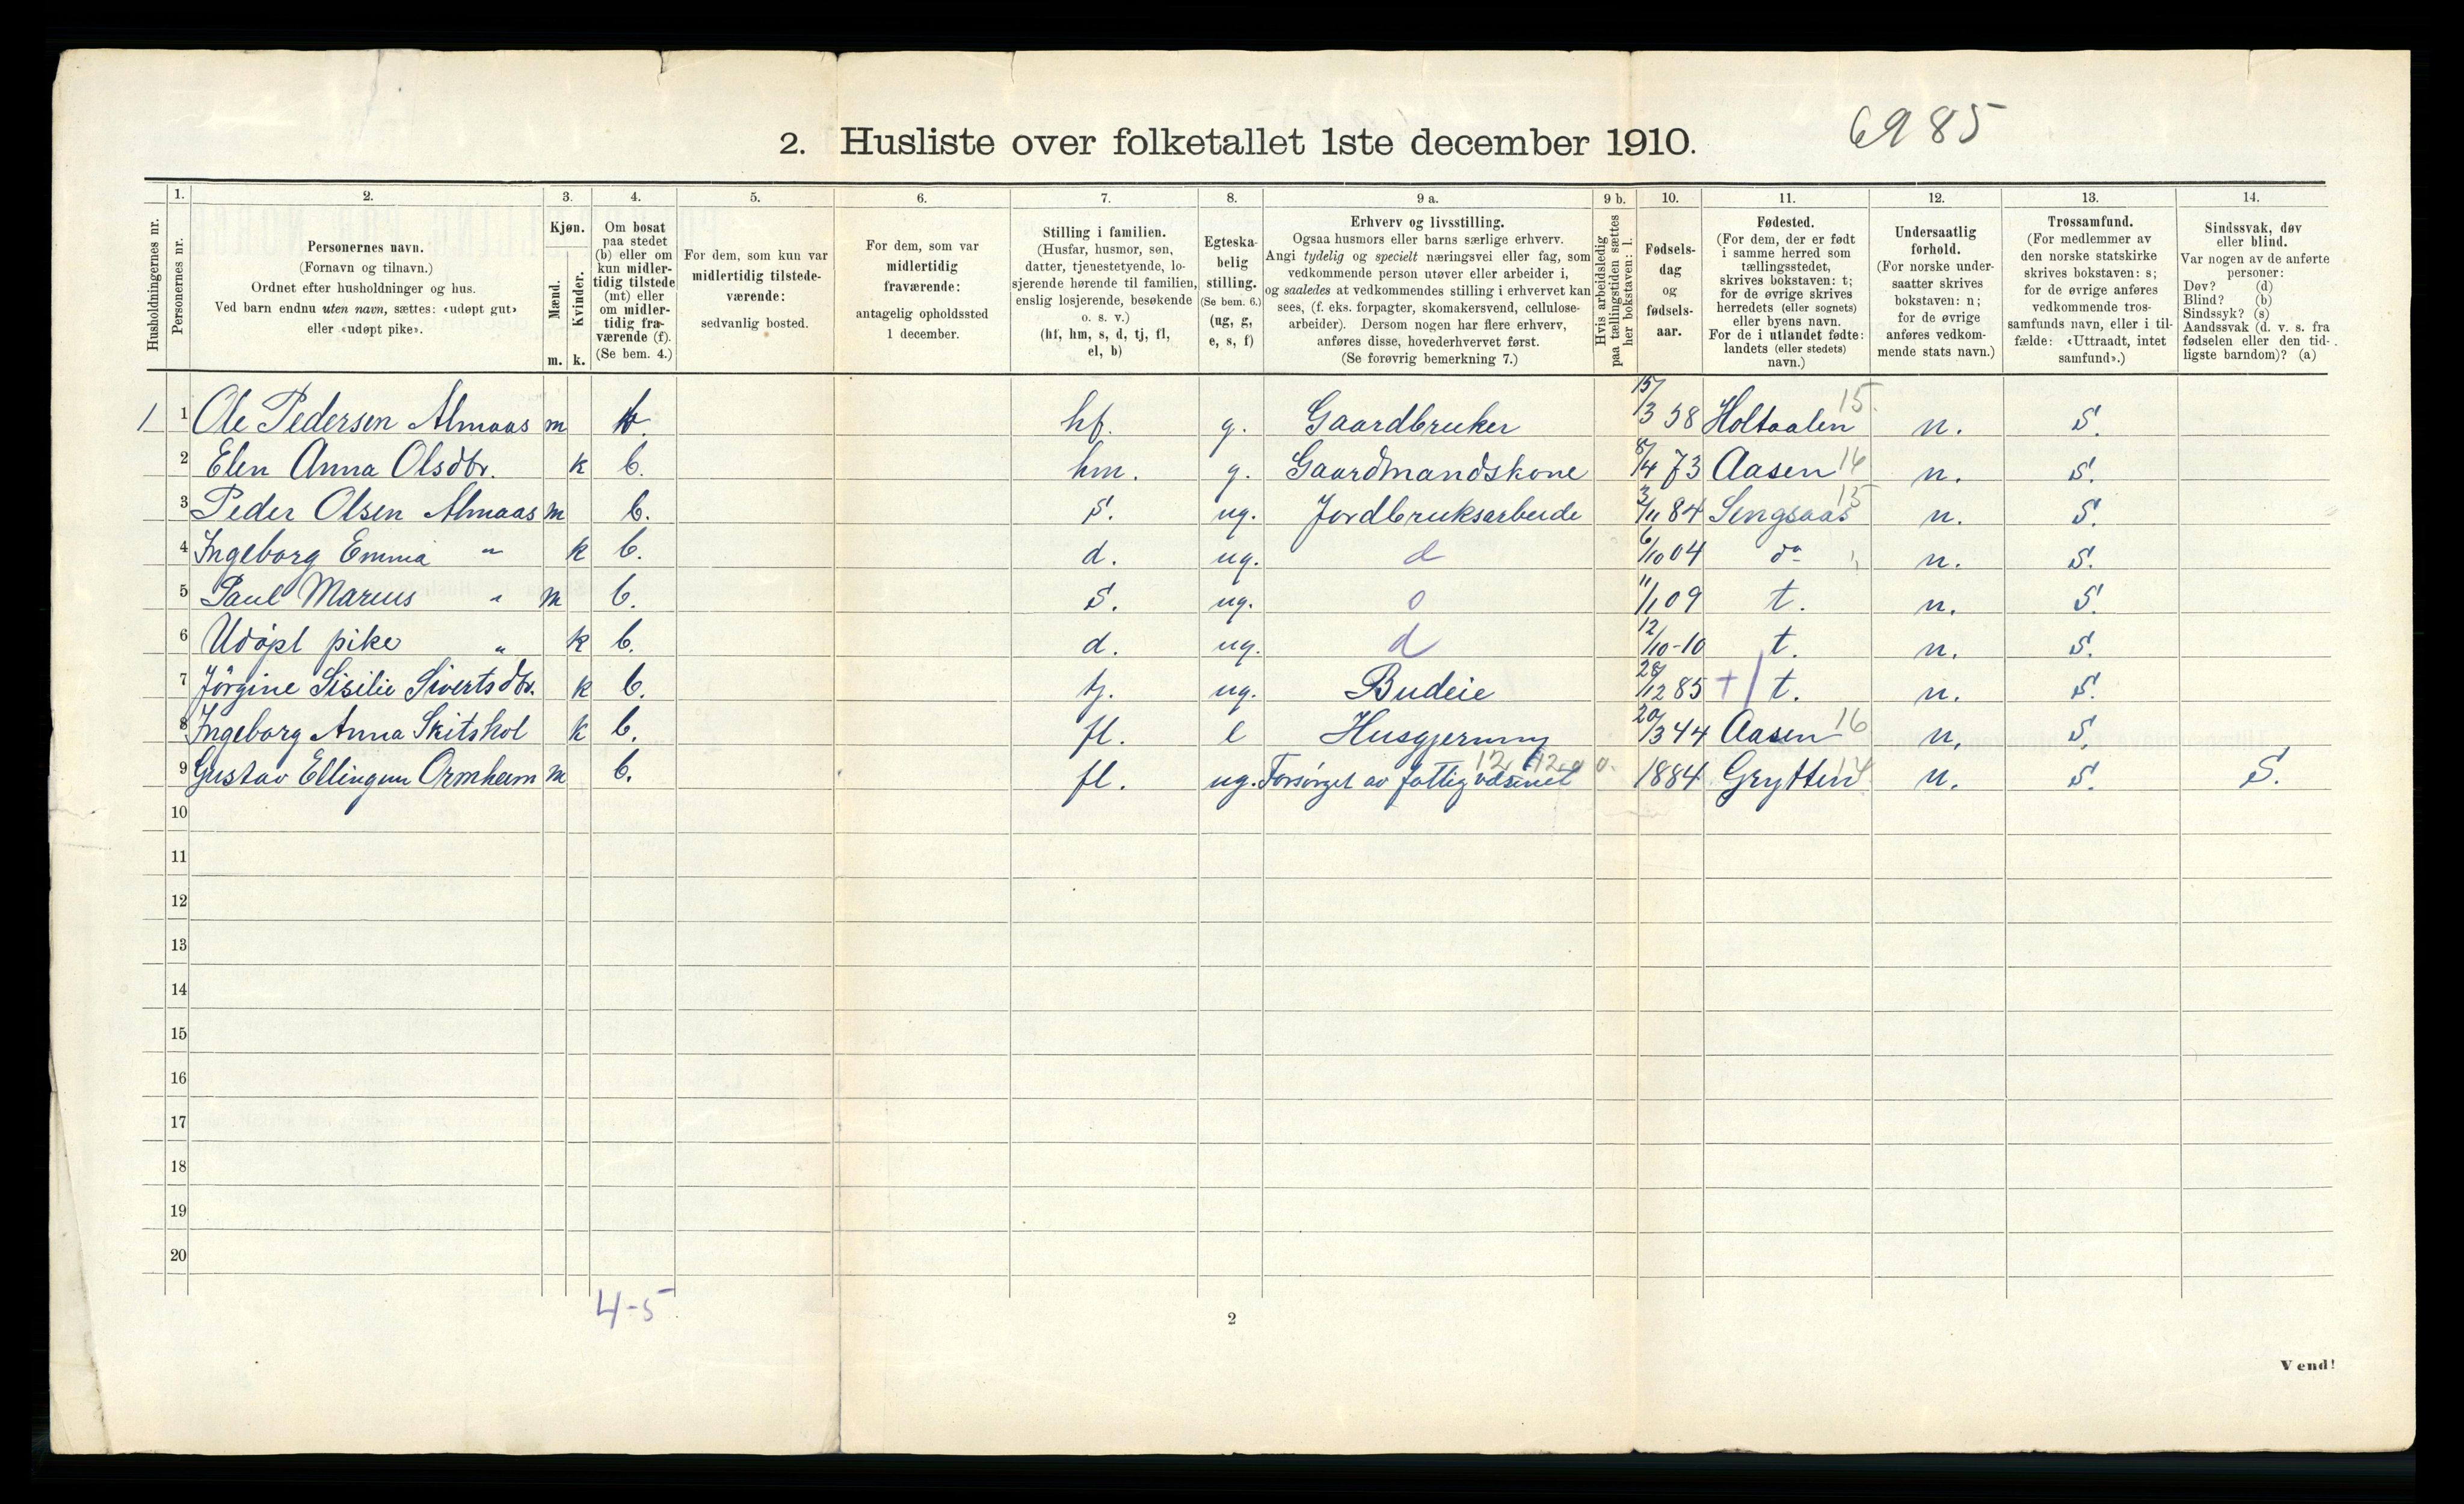 2. Husliste over folketallet 1ste december 1910.
6985
Husholdningernes nr.
1.
Personernes nr.
2.
Personernes navn.
(Fornavn og tilnavn.)
Ordnet efter husholdninger og hus.
Ved barn endnu uten navn, sættes: «udøpt gut»
eller «udøpt pike».
3.
Kjøn.
Mænd.
m.
Kvinder.
k.
4.
Om bosat
paa stedet
(b) eller om
kun midler-
tidig tilstede
(mt) eller
om midler-
tidig fra-
værende (f).
(Se bem. 4.)
5.
For dem, som kun var
midlertidig tilstede-
værende:
sedvanlig bosted.
6.
For dem, som var
midlertidig
fraværende:
antagelig opholdssted
1 december.
7.
Stilling i familien.
(Husfar, husmor, søn,
datter, tjenestetyende, lo-
sjerende hørende til familien,
enslig losjerende, besøkende
o. s. v.)
(hf, hm, s, d, tj, fl,
el, b)
8.
Egteska-
belig
stilling.
(Se bem. 6.)
(ug, g,
e, s, f)
9 a.
Erhverv og livsstilling.
Ogsaa husmors eller barns særlige erhverv.
Angi tydelig og specielt næringsvei eller fag, som
vedkommende person utøver eller arbeider i,
og saaledes at vedkommendes stilling i erhvervet kan
sees, (f. eks. forpagter, skomakersvend, cellulose-
arbeider). Dersom nogen har flere erhverv,
anføres disse, hovederhvervet først.
(Se forøvrig bemerkning 7.)
9 b.
Hvis arbeidsledig
paa tællingstiden sættes
her bokstaven: l.
10.
Fødsels-
dag
og
fødsels-
aar.
11.
Fødested.
(For dem, der er født
i samme herred som
tællingsstedet,
skrives bokstaven: t;
for de øvrige skrives
herredets (eller sognets)
eller byens navn.
For de i utlandet fødte:
landets (eller stedets)
navn.)
12.
Undersaatlig
forhold.
(For norske under-
saatter skrives
bokstaven: n;
for de øvrige
anføres vedkom-
mende stats navn.)
13.
Trossamfund.
(For medlemmer av
den norske statskirke
skrives bokstaven: s;
for de øvrige anføres
vedkommende tros-
samfunds navn, eller i til-
fælde: «Uttraadt, intet
samfund».)
14.
Sindssvak, døv
eller blind.
Var nogen av de anførte
personer:
Døv? (d)
Blind? (b)
Sindssyk? (s)
Aandssvak (d. v. s. fra
fødselen eller den tid-
ligste barndom)? (a)
1 1 Ole Pedersen Almaas m b. hf. g. Gaardbruker 15/3 58 Holtaalen 15. n. S.
2 Elen Anna Olsdtr. k b. hm. g. Gaardmandskone 8/4 73 Aasen 16 n. S.
3 Peder Olsen Almaas m b. S. ug. Jordbruksarbeide 3/11 84 Sengsaas 15 n. S.
4 Ingeborg Emma " k b. d. ug. d 6/10 04 do n. S.
5 Paul Marius " m b. S. ug. o 11/1 09 t. n. S.
6 Udöpt pike " k b. d. ug. d 12/10-10 t. n. S.
7 Jörgine Sisilie Sivertsdtr. k b. tj. ug. Budeie 28/12 85 + t. n. S.
8 Ingeborg Anna Skitshol k b. fl. e Husgjerning 20/3 44 Aasen 16 n. S.
9 Gustav Ellingsen Ormheim m b. fl. ug. Forsörget av fattigvæsenet 1884 Grytten 14 n. S. S.
10
11
12
13
14
15
16
17
18
19
20
4-5
2
Vend!